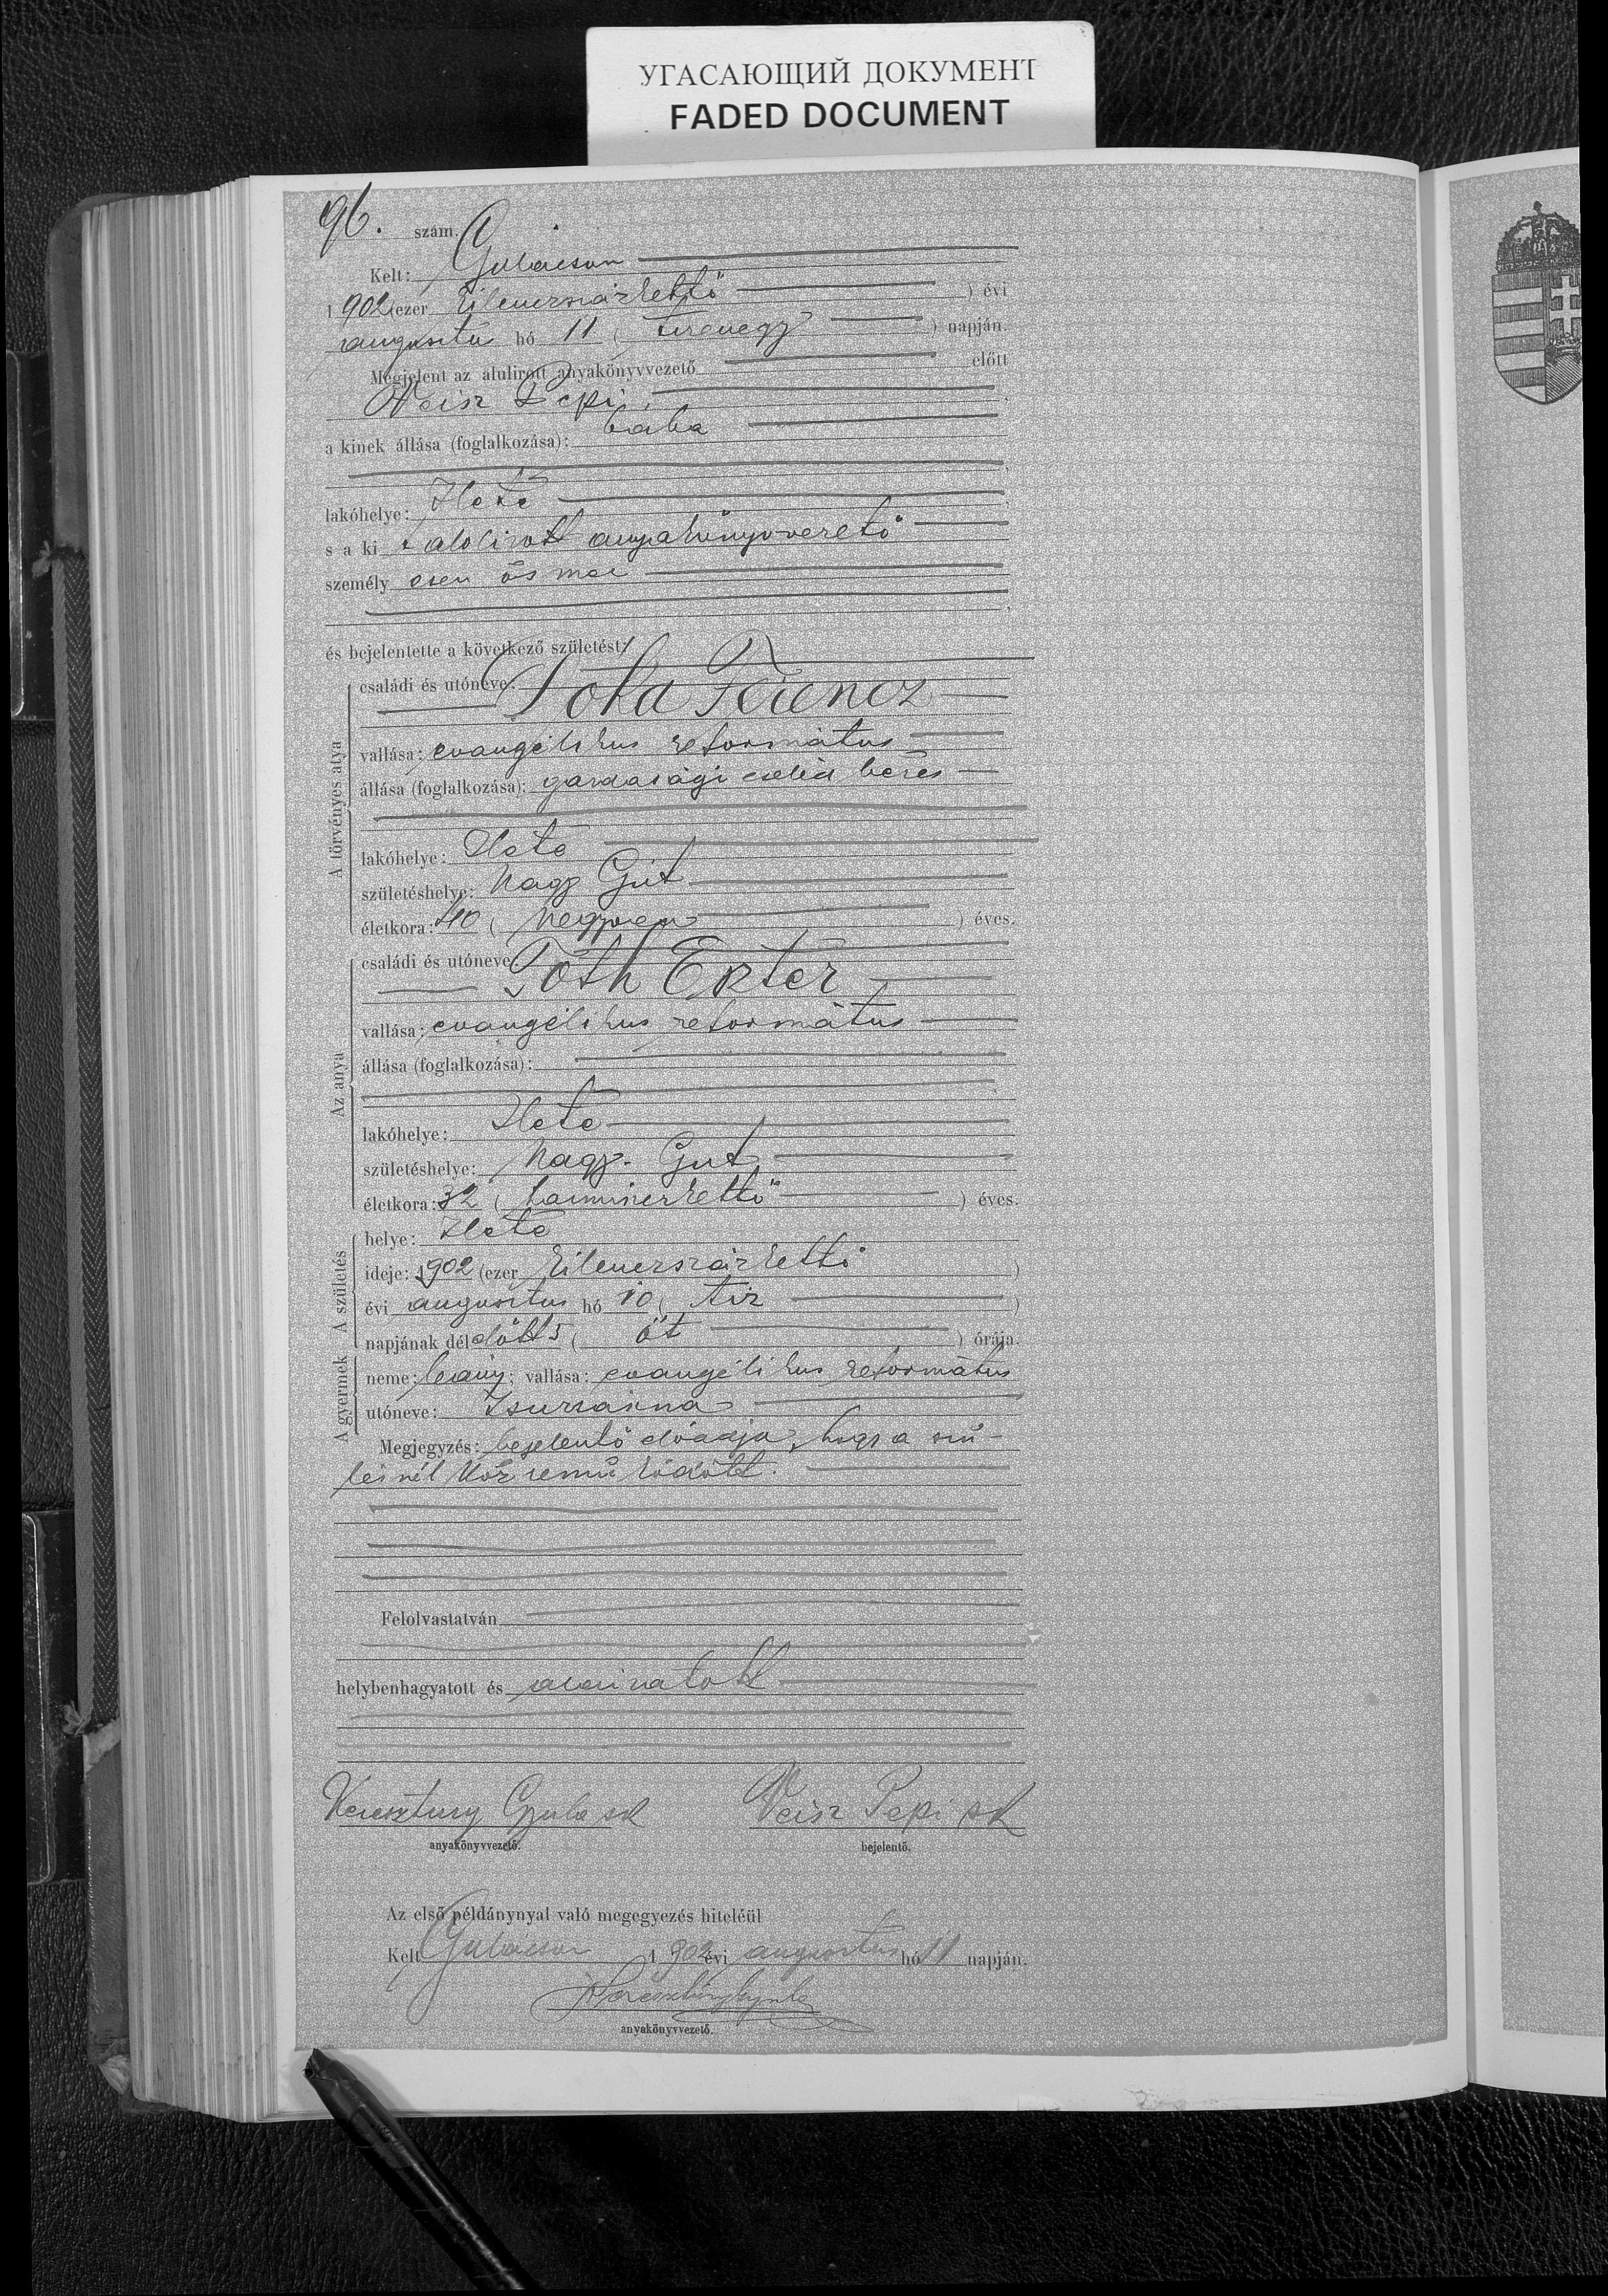 УГАСАЮЩИЙ ДОКУМЕНТ
FADED DOCUMENT
96. szám.
Kelt: Gulácson
1902 (ezer kilenczszázkettő ) évi
augusztus hó 11 ( tizenegy ) napján.
Megjelent az alulirott anyakönyvvezető előtt
Veisz Pepi,
a kinek állása (foglalkozása): bába
lakóhelye: Hete
s a ki alolirott anyakönyvvezető
személyesen ösmer
és bejelentette a következő születést:
A törvényes atya
családi és utóneve: Tóta Ferencz
vallása: evangélikus református
állása (foglalkozása): gazdasági cseléd béres
lakóhelye: Hete
születéshelye: Nagy Gút
életkora: 40 ( negyven ) éves.
Az anya
családi és utóneve: Tóth Eszter
vallása: evangélikus református
állása (foglalkozása):
lakóhelye: Hete
születéshelye: Nagy-Gút
életkora: 32 ( harminczkettő ) éves.
A születés
helye: Hete
ideje: 1902 (ezer kilenczszázkettő )
évi augusztus hó 10 ( tiz )
napjának délelőtt 5 ( öt ) órája.
A gyermek
neme: leány; vallása: evangélikus református
utóneve: Zsuzsánna
Megjegyzés: bejelentő előadja, hogy a szü-
lésnél közremüködött.
Felolvastatván
helybenhagyatott és aláiratott
Keresztury Gyula sk Veisz Pepi sk
anyakönyvvezető. bejelentő.
Az első példánynyal való megegyezés hiteléül
Kelt Gulácson 1902 évi augusztus hó 11 napján.
Keresztury Gyula
anyakönyvvezető.